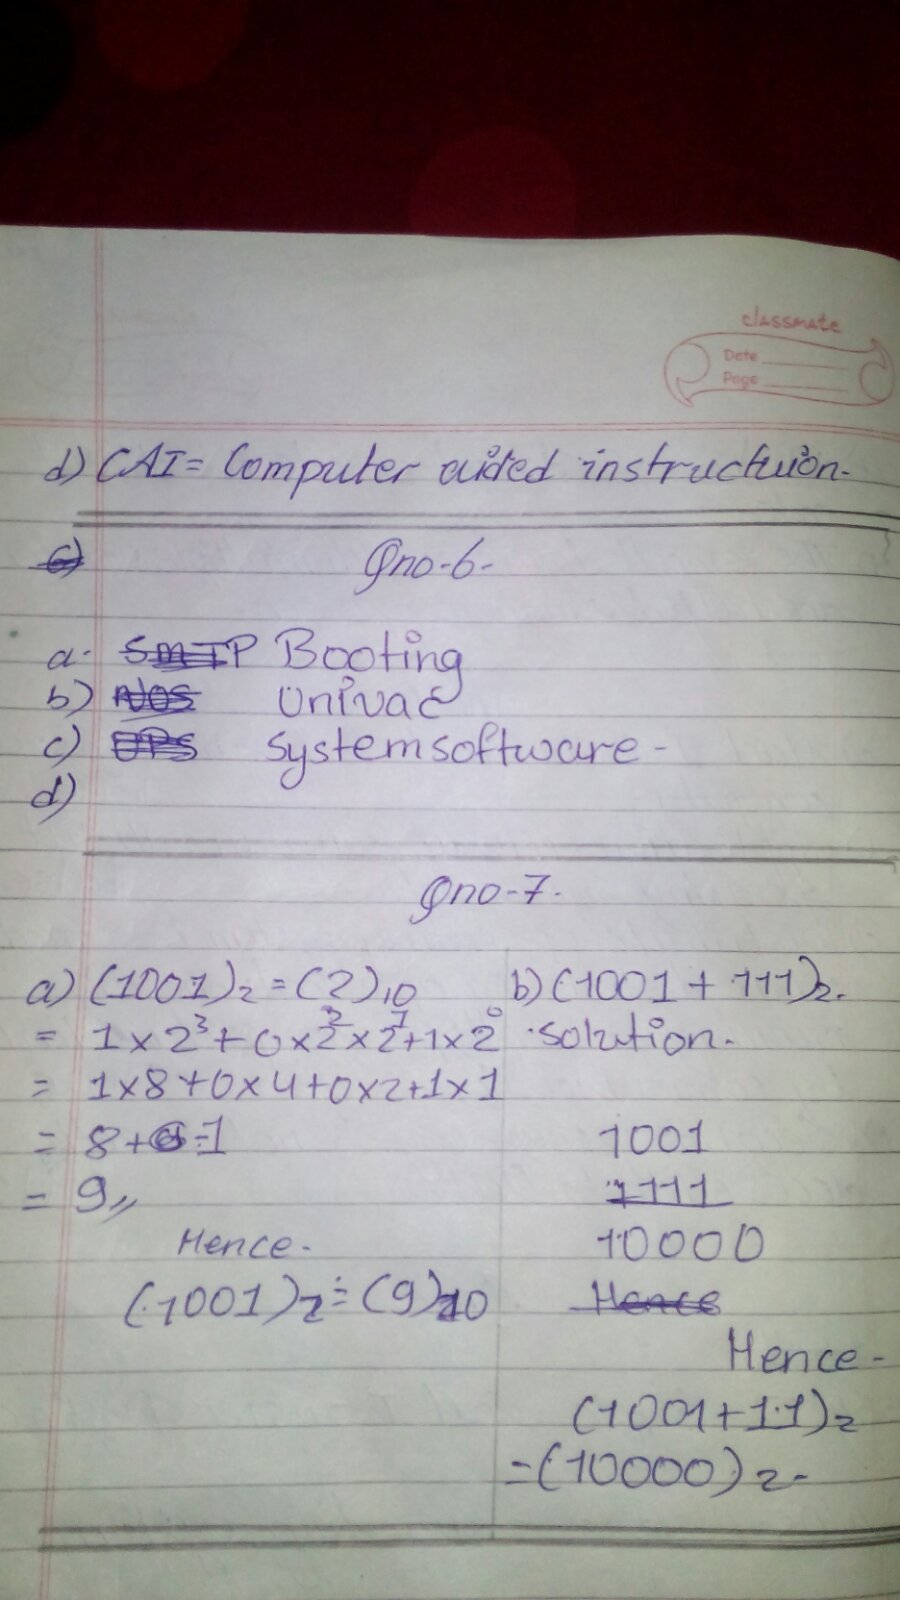 classmate
Date
Page
d) CAI = Computer aided instructuion-
c) Qno-6-
a. SMTP Booting
b) NOS Univac
c) UPS system software -
d)
Qno-7.
a) (1001)2 = (?)10
= 1x2³+0x2²x2¹+1x2⁰
= 1x8+0x4+0x2+1x1
= 8+1
= 9,,
Hence-
(1001)2 = (9)10
b) (1001 + 111)2.
solution.
1001
1111
10000
Hence
Hence-
(1001+11)2
=(10000)2-